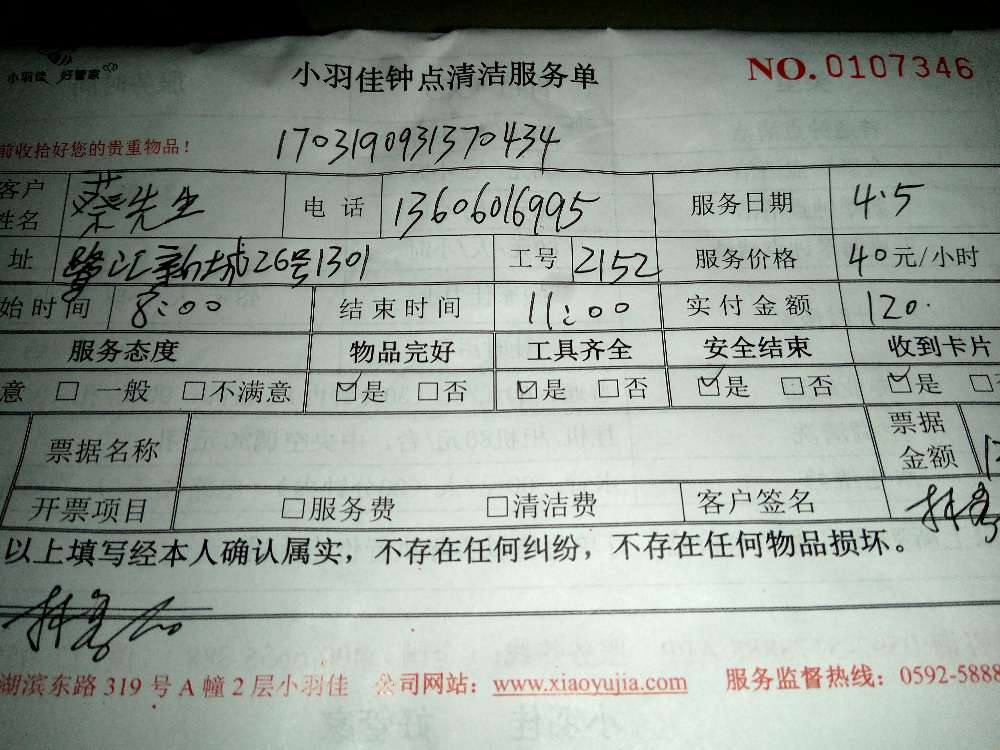 小羽佳 好管家
小羽佳钟点清洁服务单 NO. 0107346
前收拾好您的贵重物品！ 1703190931370434
客户姓名 蔡先生 电话 13606016995 服务日期 4.5
址 鹭江新城26号1301 工号 2152 服务价格 40元/小时
始时间 8:00 结束时间 11:00 实付金额 120.
服务态度 物品完好 工具齐全 安全结束 收到卡片
意 □ 一般 □不满意 ☑是 □否 ☑是 □否 ☑是 □否 ☑是 □
票据名称 票据金额
开票项目 □服务费 □清洁费 客户签名
以上填写经本人确认属实，不存在任何纠纷，不存在任何物品损坏。
湖滨东路 319 号 A 幢 2 层小羽佳 公司网站：www.xiaoyujia.com 服务监督热线：0592-5888